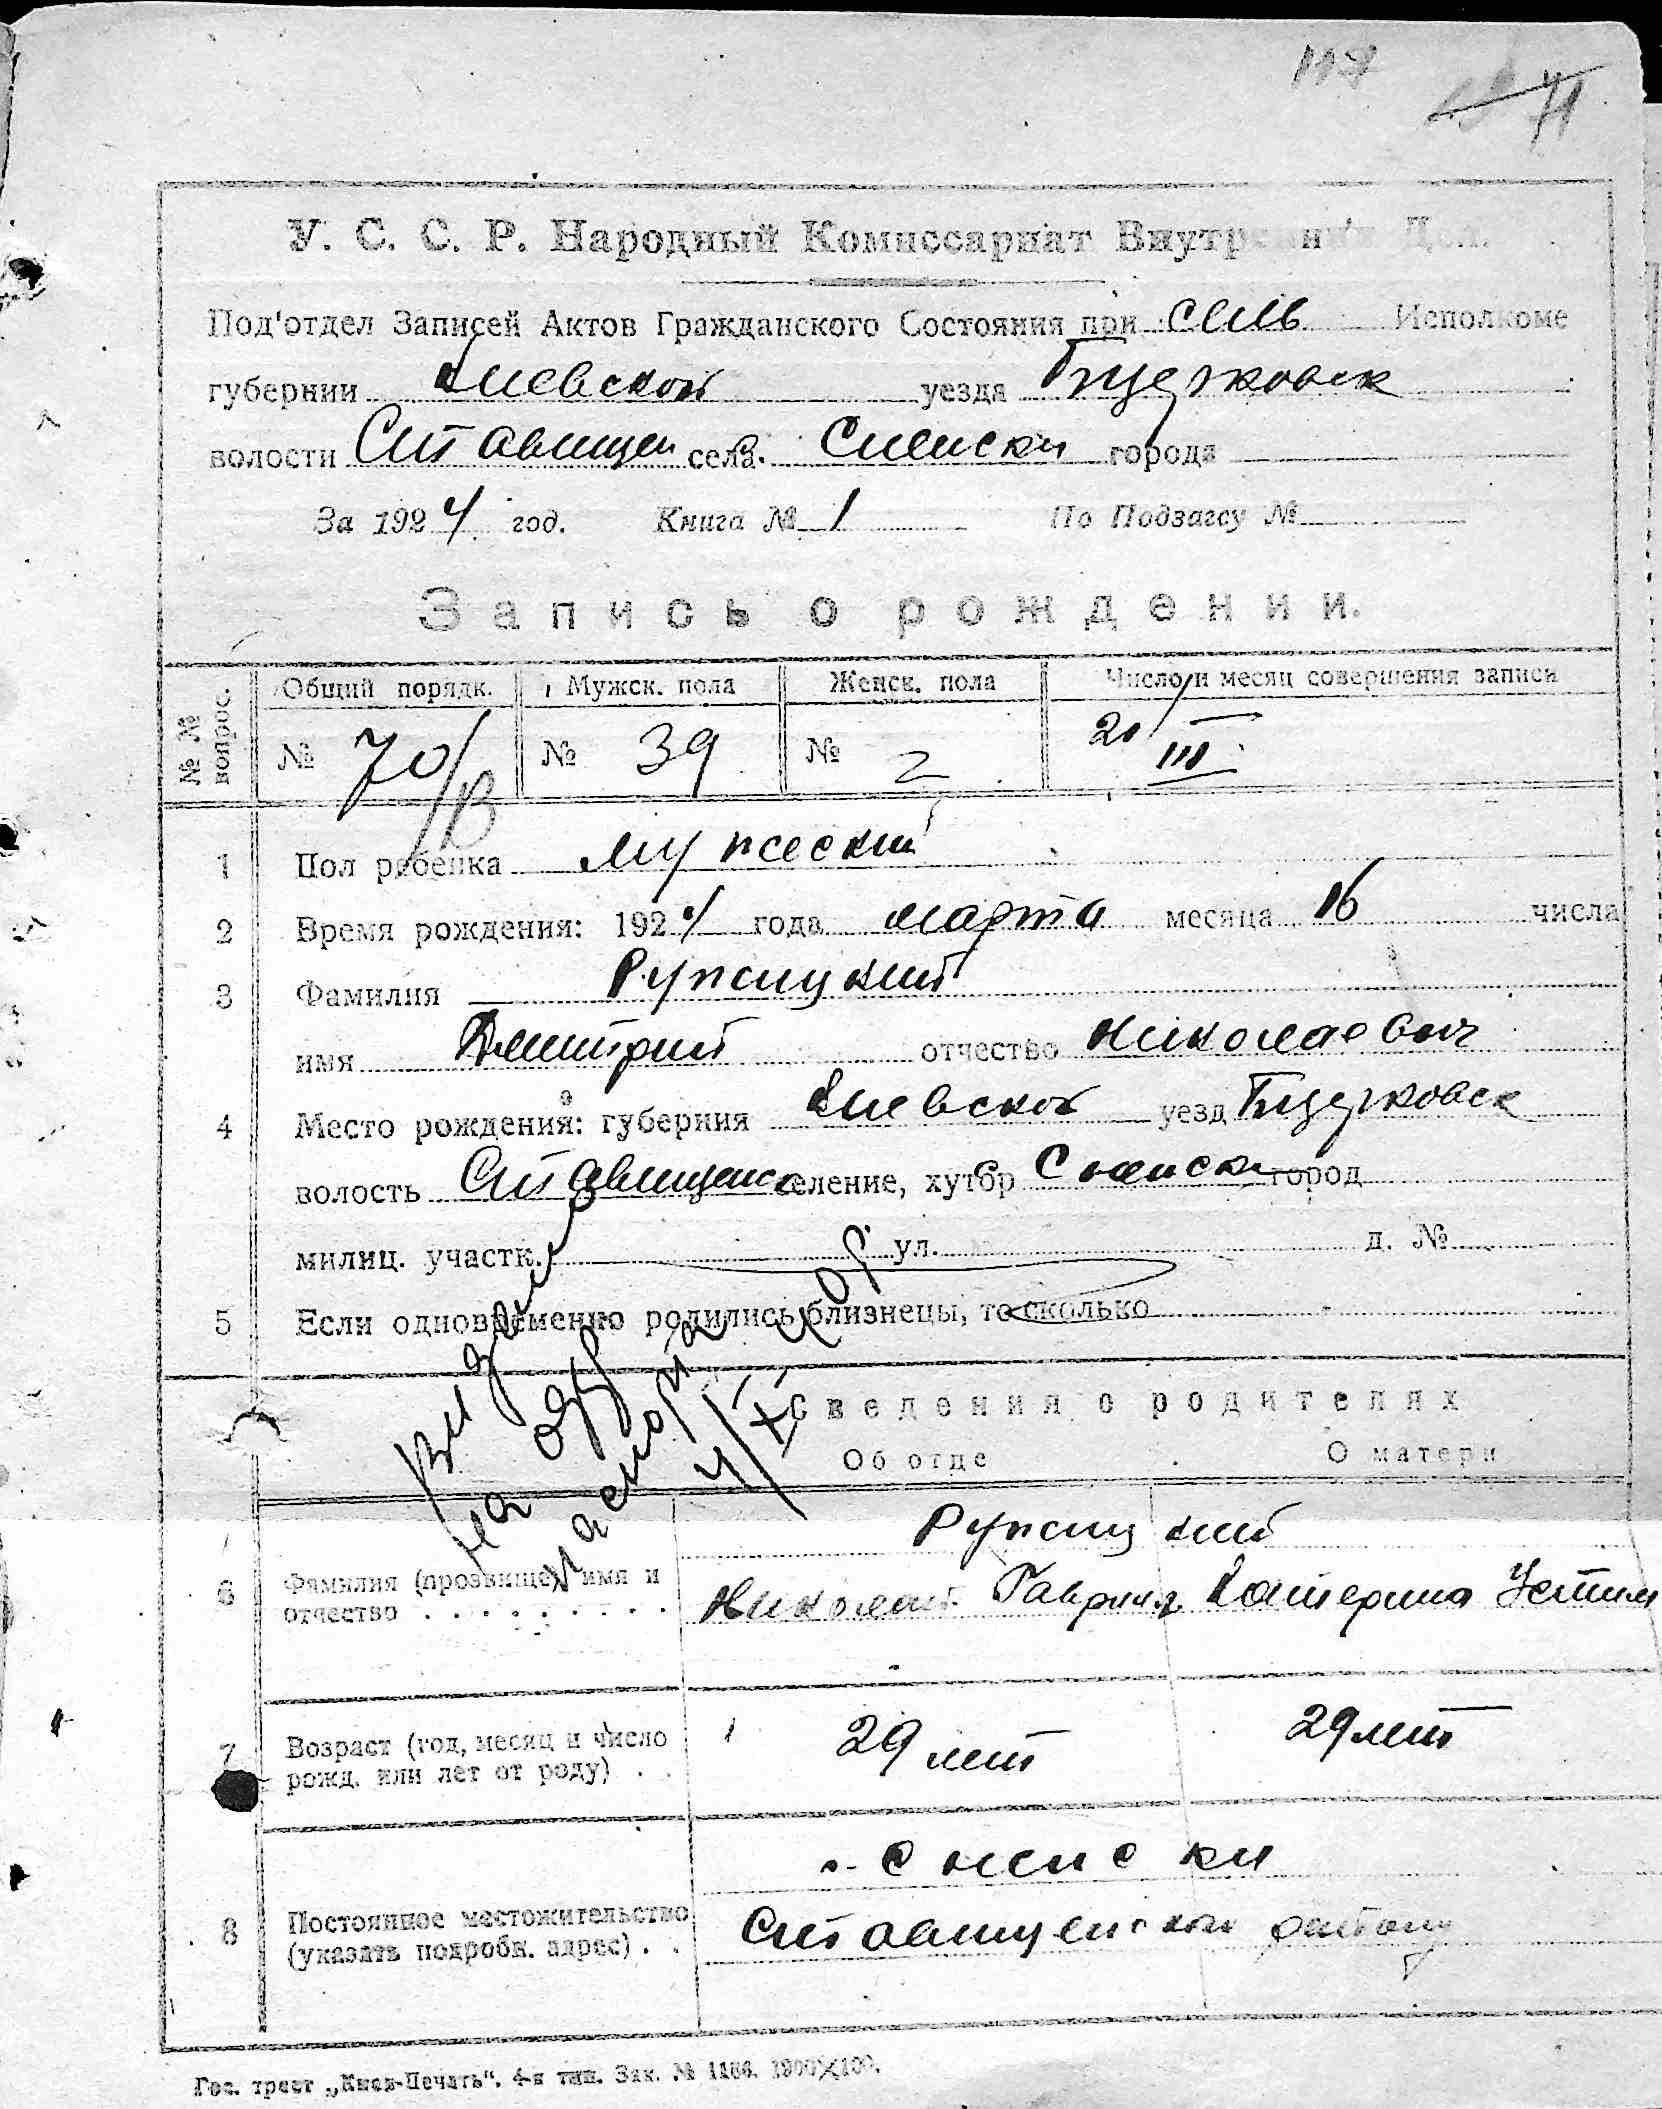 117
71
У. С. С. Р. Народный Комиссариат Внутренних Дел.
Под'отдел Записей Актов Гражданского Состояния при сель Исполкоме
губернии Киевской уезда Бцерковск
волости Ставищен села Снеиски города
За 1924 год. Книга № 1 По Подзагсу №
Запись о рождении.
№ № вопрос. Общий порядк. Мужск. пола Женск. пола Число и месяц совершения записи
№ 70/В № 39 № 2 20/III
1 Пол ребенка мужеский
2 Время рождения: 1924 года марта месяца 16 числа
3 Фамилия Ружицкий
имя Дмитрий отчество Николаевич
4 Место рождения: губерния Киевской уезд Бцерковск
волость Ставищенск селение, хутор город
милиц. участк. ул. д. №
5 Если одновременно родились близнецы, то сколько
Сведения о родителях
Об отце О матери
Ружицкий
6 Фамилия (прозвище) имя и отчество Николай Гаврил. Катерина Устим
7 Возраст (год, месяц и число рожд. или лет от роду) 29 лет 29 лет
8 Постоянное местожительство (указать подробн. адрес)
Ставищенского району
паспорта
Гос. трест „Киев-Печать“. 4-я тип. Зак. № 1186. 1900×100.